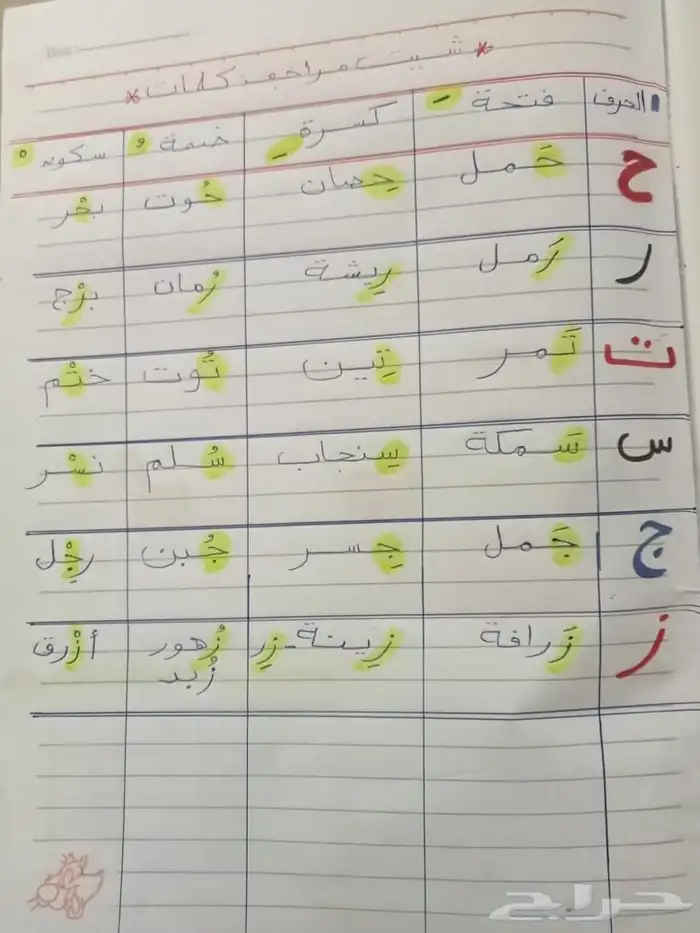 Date:
* شيت مراجعة كلمات *
الحرف فتحة كسرة ضمة سكون
ح حَمل حِصان حُوت بحْر
ر رَمل رِيشة رُمان برْج
ت تَمر تِين تُوت ختْم
س سَمكة سِنجاب سُلم نسْر
ج جَمل جِسر جُبن رجْل
ز زَرافة زِينة - زِر زُهور أزْرق
زُبد
حراج